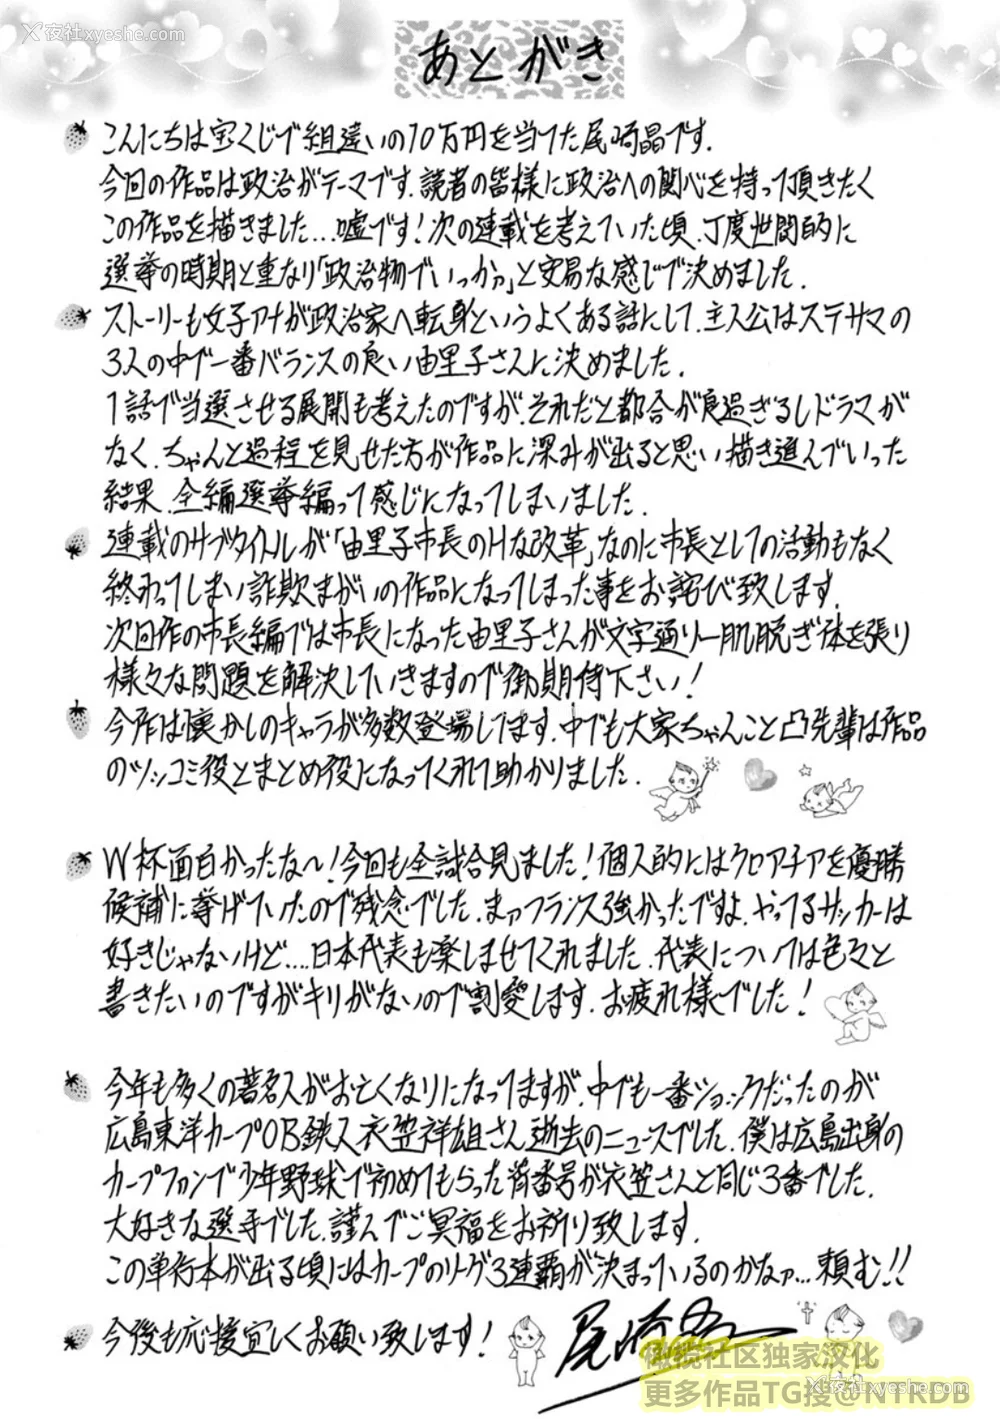 夜社xyeshe.com
夜社xyeshe.com
あとがき
こんにちは宝くじで組違いの10万円を当てた尾崎晶です.
今回の作品は政治がテーマです.読者の皆様に政治への関心を持って頂きたく
この作品を描きました…嘘です!次の連載を考えていた頃、丁度世間的に
選挙の時期と重なり「政治物でいっかァ」と安易な感じで決めました.
ストーリーも女子アナが政治家へ転身というよくある話にして、主人公はステサマの
3人の中で一番バランスの良い由里子さんに決めました.
1話で当選させる展開も考えたのですが、それだと都合が良過ぎるしドラマが
なく、ちゃんと過程を見せた方が作品に深みが出ると思い描き進んでいった
結果、全編選挙編って感じになってしまいました.
連載のサブタイトルが「由里子市長のHな改革」なのに市長としての活動もなく
終わってしまい詐欺まがいの作品になってしまった事をお詫び致します.
次回作の市長編では市長になった由里子さんが文字通り一肌脱ぎ体を張り
様々な問題を解決していきますので御期待下さい!
今作は懐かしのキャラが多数登場してます.中でも大家ちゃんこと凸先輩は作品
のツッコミ役とまとめ役になってくれて助かりました.
W杯面白かったな〜!今回も全試合見ました!個人的にはクロアチアを優勝
候補に挙げていたので残念でした.まァフランス強かったですよ、やってるサッカーは
好きじゃないけど….日本代表も楽しませてくれました.代表については色々と
書きたいのですがキリがないので割愛します.お疲れ様でした!
今年も多くの著名人がお亡くなりになってますが、中でも一番ショックだったのが
広島東洋カープOB鉄人衣笠祥雄さん逝去のニュースでした.僕は広島出身の
カープファンで少年野球で初めてもらった背番号が衣笠さんと同じ3番でした.
大好きな選手でした.謹んでご冥福をお祈り致します.
この単行本が出る頃にはカープのリーグ3連覇が決まっているのかなァ…頼む!!
今後も応援宜しくお願い致します!
尾崎晶
橄榄社区独家汉化
更多作品TG搜@NTRDB
夜社xyeshe.com